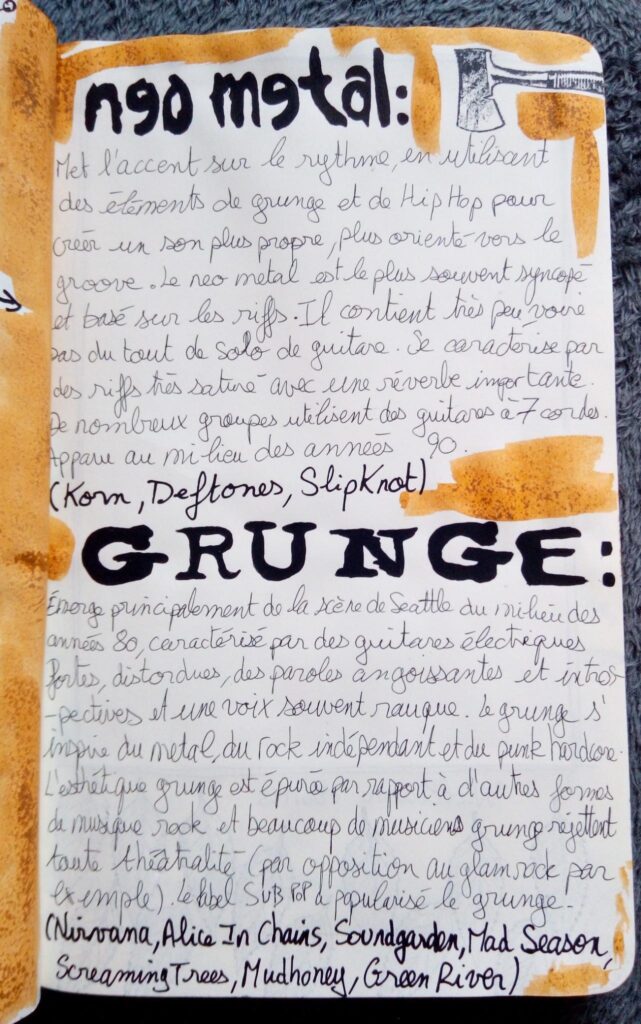 neo metal:
Met l'accent sur le rythme, en utilisant
des éléments de grunge et de Hip Hop pour
créer un son plus propre, plus orienté vers le
groove. Le neo metal est le plus souvent syncopé
et basé sur les riffs. Il contient très peu voire
pas du tout de solo de guitare. Se caractérise par
des riffs très saturé avec une réverbe importante.
De nombreux groupes utilisent des guitares à 7 cordes.
Apparu au milieu des années 90.
(Korn, Deftones, SlipKnot)
GRUNGE:
Émerge principalement de la scène de Seattle du milieu des
années 80, caractérisé par des guitares électriques
fortes, distordues, des paroles angoissantes et intros-
-pectives et une voix souvent rauque. Le grunge s'
inspire du metal, du rock indépendant et du punk hardcore.
L'esthétique grunge est épurée par rapport à d'autres formes
de musique rock et beaucoup de musiciens grunge rejettent
toute théâtralité (par opposition au glamrock par
exemple). Le label SUB POP a popularisé le grunge.
(Nirvana, Alice In Chains, Soundgarden, Mad Season,
Screaming Trees, Mudhoney, Green River)